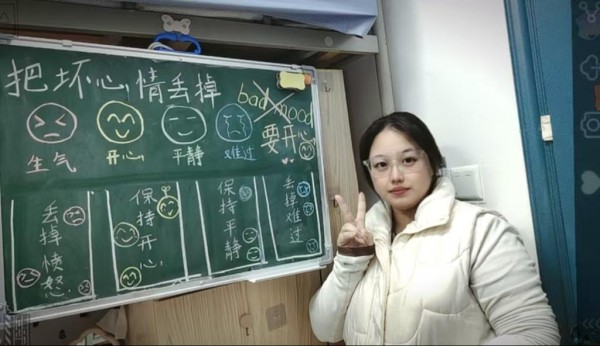 把坏心情丢掉
bad mood
要开心
生气
开心
平静
难过
丢掉愤怒
保持开心
保持平静
丢掉难过